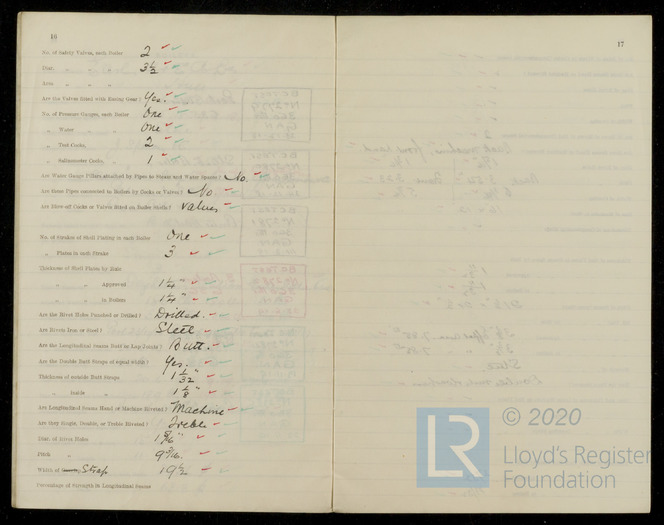 16
No. of Safety Valves, each Boiler 2
Diam. " " " 3½
Area " " "
Are the Valves fitted with Easing Gear? Yes.
No. of Pressure Gauges, each Boiler One
" Water " " One
" Test Cocks, " 2
" Salinometer Cocks, " 1
Are Water Gauge Pillars attached by Pipes to Steam and Water Spaces? No.
Are these Pipes connected to Boilers by Cocks or Valves? No
Are Blow-off Cocks or Valves fitted on Boiler Shells? Valves
No. of Strakes of Shell Plating in each Boiler One
" Plates in each Strake 3
Thickness of Shell Plates by Rule
" " Approved 1¼"
" " in Boilers 1¼"
Are the Rivet Holes Punched or Drilled? Drilled.
Are Rivets Iron or Steel? Steel
Are the Longitudinal Seams Butt or Lap Joints? Butt.
Are the Double Butt Straps of equal width? Yes.
Thickness of outside Butt Straps 1 1/32"
" inside " 1 1/8"
Are Longitudinal Seams Hand or Machine Riveted? Machine
Are they Single, Double, or Treble Riveted? Treble
Diam. of Rivet Holes
Pitch " 9 9/16.
Width of Strap 19½
Percentage of Strength in Longitudinal Seams
17
© 2020
LR
Lloyd's Register
Foundation